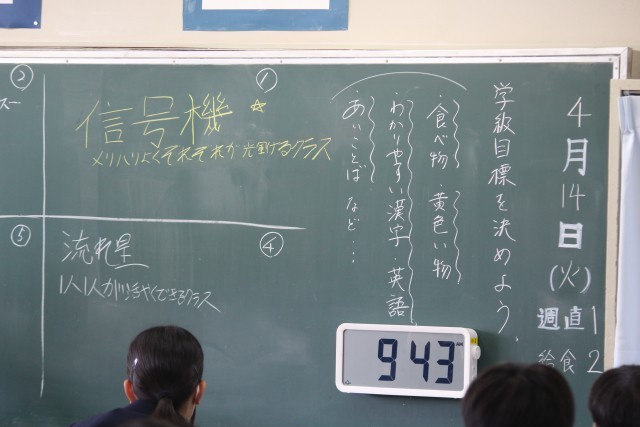 4月14日(火)
週直1
給食2
学級目標を決めよう。
・食べ物・黄色い物
・わかりやすい漢字・英語
・あいことば など…
①
信号機☆
メリハリよくそれぞれが光輝けるクラス
②
スー
④
流れ星
1人1人が活やくできるクラス
⑤
9 43